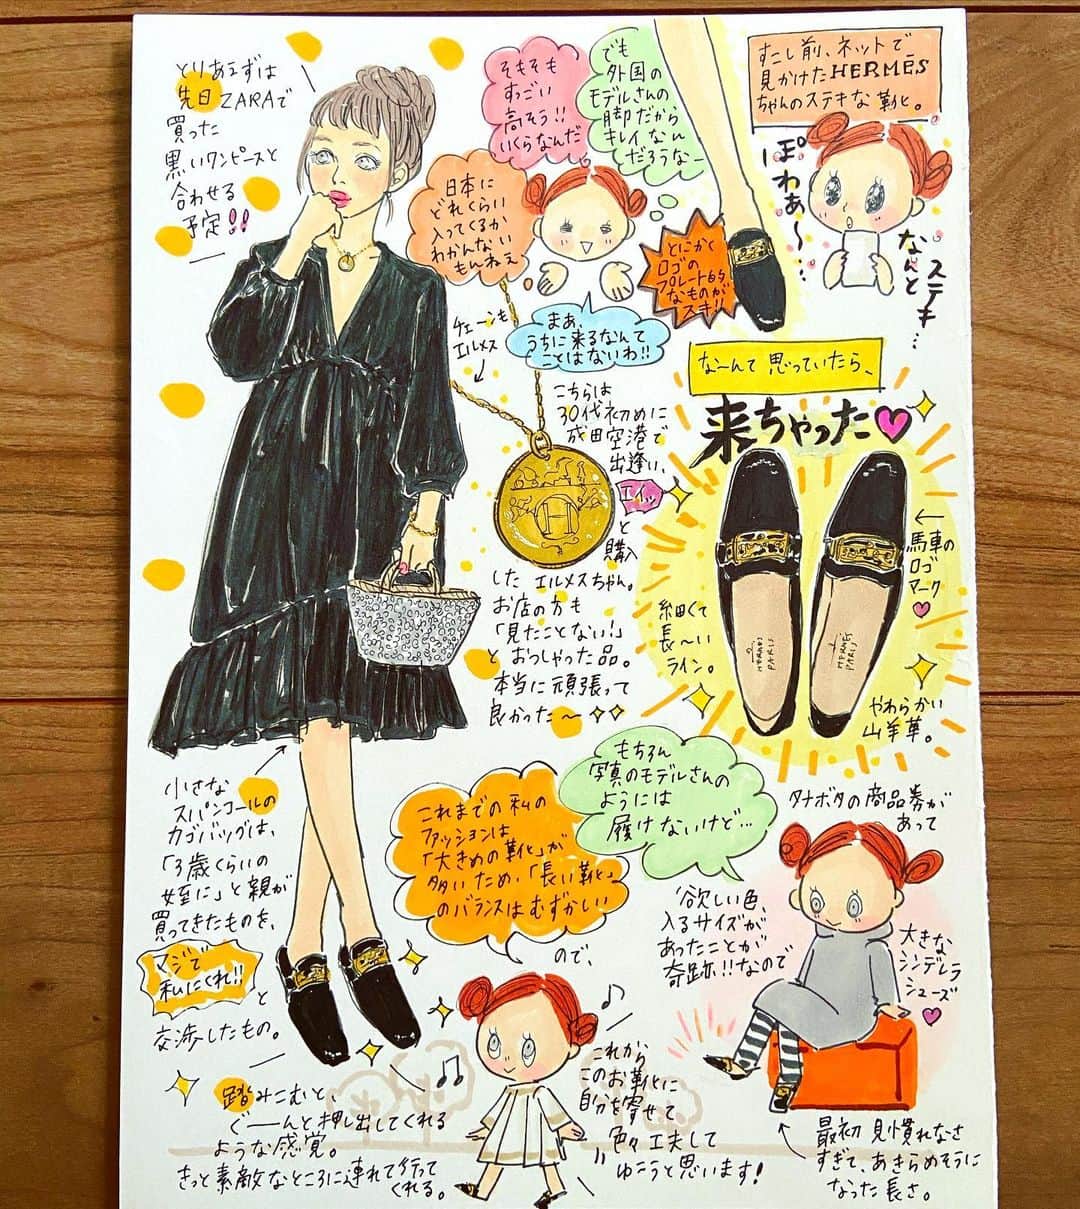 すこし前、ネットで、
見かけたHERMĒS
ちゃんのステキな靴。
ぽわぁ〜…
なんと
ステキ…
でも
外国の
モデルさんの
脚だから
キレイなん
だろうなー
そもそも
すっごい
高そう!!
いくらなんだ
日本に
どれくらい
入ってくるか
わかんない
もんねえ
とにかく
ロゴの
プレート的
なものが
スキ!!
まあ、
うちに来るなんて
ことはないわ!!
なーんて思っていたら、
来ちゃった♡
←
馬車の
ロゴ
マーク
♡
細くて
長〜い
ライン。
やわらかい
山羊革。
HERMES
PARIS
HERMES
PARIS
とりあえずは
先日ZARAで
買った
黒いワンピースと
合わせる
予定!!
チェーンも
エルメス
こちらは
30代初めに
成田空港で
出逢い、
エイッ
と
購入
した エルメスちゃん。
お店の方も
「見たことない!」
と おっしゃった品。
本当に頑張って
良かった〜
H
小さな
スパンコールの
カゴバッグは、
「3歳くらいの
姪に」と親が
買ってきたものを、
マジで
私にくれ!!
と
交渉したもの。
踏みこむと、
ぐーんと押し出してくれる
ような感覚。
きっと素敵なところに連れて行って
くれる。
もちろん
写真のモデルさんの
ようには
履けないけど…
これまでの私の
ファッションは
「大きめの靴」が
多いため、「長い靴」
のバランスはむずかしい
ので、
これから
このお靴に
自分を寄せて
色々工夫して
ゆこうと思います!
タナボタの商品券が
あって
欲しい色、
入るサイズが
あったことが
奇跡!!なので
大きな
シンデレラ
シューズ
♡
最初 見慣れなさ
すぎて、あきらめそうに
なった長さ。